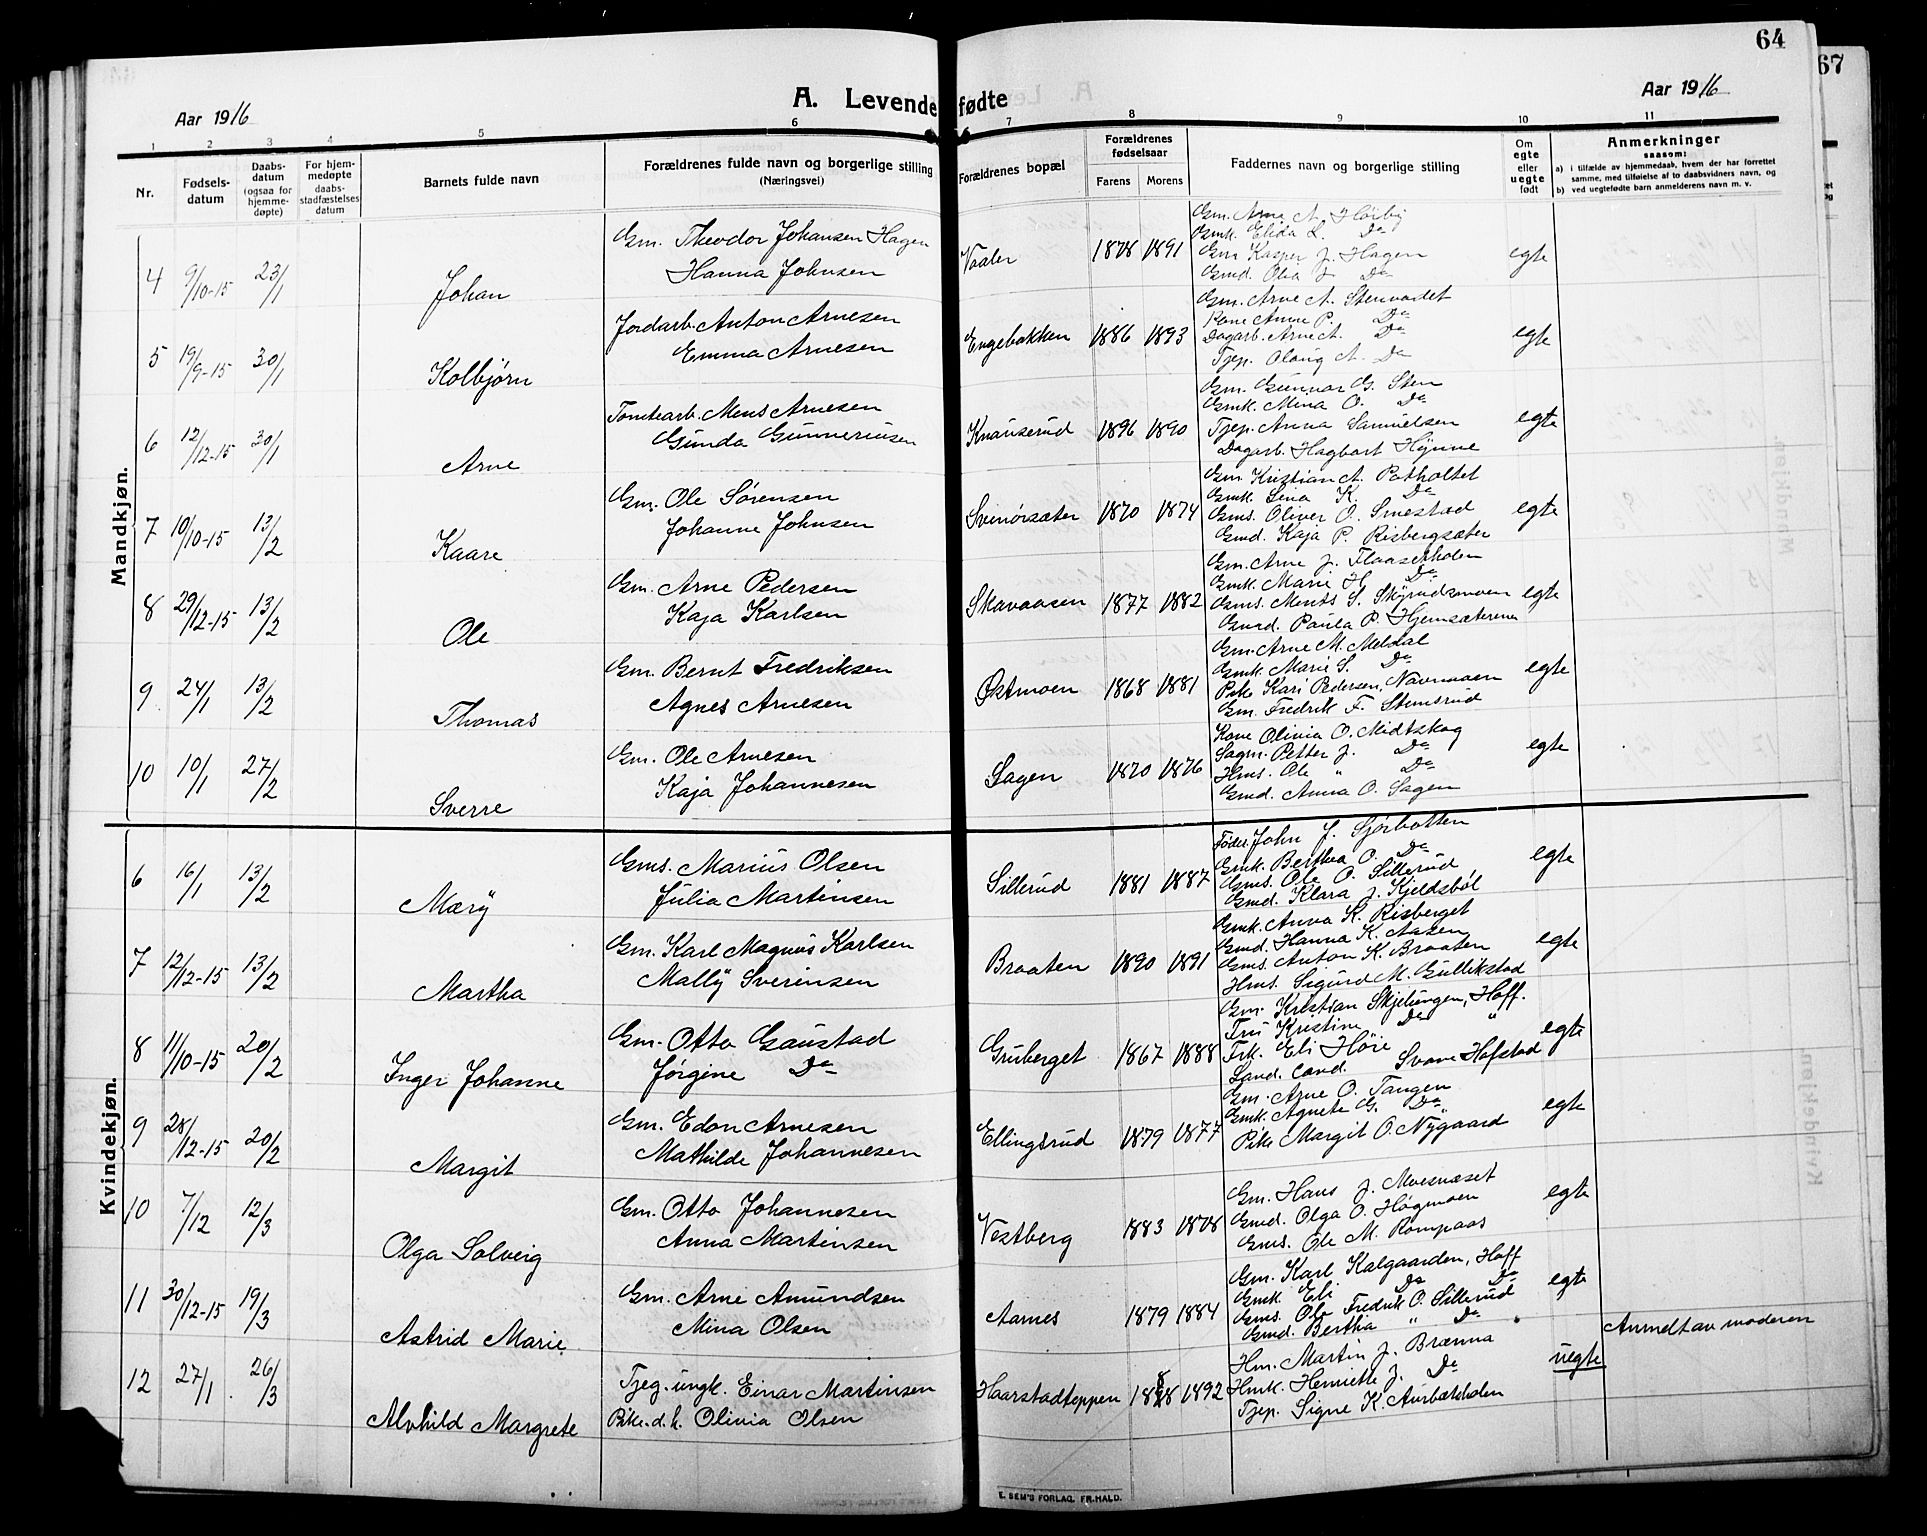 64
67
Aar 1916
A. Levendefødte
Aar 1916
1 2 3 4 5 6 7 8 9 10 11
Nr.
Fødsels-datum
Daabs-datum (ogsaa for hjemme-døpte)
For hjem-medøpte daabs-stadfæstelses datum
Barnets fulde navn
Forældrenes fulde navn og borgerlige stilling (Næringsvei)
Forældrenes bopæl
Forældrenes fødselsaar
Farens Morens
Faddernes navn og borgerlige stilling
Om egte eller uegte født
Anmerkninger
saasom:
a) i tilfælde av hjemmedaab, hvem der har forrettet samme, med tilføielse af to daabsvidners navn, og
b) ved uegtefødte barn anmelderens navn m. v.
Mandkjøn.
4 9/10-15 23/1 Johan
Gm. Theodor Johansen Hagen
Hanna Johnsen
Vaaler 1878 1891
Gm. Arne A. Hörby
Gmk. Elida L. Do
Gm. Kasper J. Hagen
Gmd. Olia J. Do
egte
5 19/9-15 30/1 Kolbjørn
Jordarb. Anton Arnesen
Emma Arnesen
Engebakken 1886 1893
Gm. Arne A. Stenvadet
Kone Anne P. Do
Dagarb. Arne A. Do
Tjep. Olaug A. Do
egte
6 12/12-15 30/1 Arne
Tomtearb. Mens Arnesen
Gunda Gunneriusen
Knauserud 1896 1890
Gm. Gunnar G. Sten
Gmk. Mina O. Do
Tjep. Anna Samuelsen
Dagarb. Hagbart Hynne
egte
7 10/10-15 13/2 Kaare
Gm. Ole Sørensen
Johanne Johnsen
Svenörsæter 1870 1874
Gm. Kristian A. Potholtet
Gmk. Lina K. Do
Gms. Oliver O. Smestad
Gmd. Kaja P. Risbergsæter
egte
8 29/12-15 13/2 Ole
Gm. Arne Pedersen
Kaja Karlsen
Skavaasen 1877 1882
Gm. Arne J. Flaaserholen
Gmk. Marie H. Do
Gms. Ments S. Skyrudsmoen
Gmd. Paula P. Hjemsæterene
egte
9 24/1 13/2 Thomas
Gm. Bernt Fredriksen
Agnes Arnesen
Østmoen 1868 1881
Gm. Arne M. Meldal
Gmk. Marie S. Do
Pike Kari Pedersen, Navnmoen
Gm. Fredrik F. Stensrud
egte
10 10/1 27/2 Sverre
Gm. Ole Arnesen
Kaja Johannesen
Sagen 1870 1876
Kone Olivia O. Midtskog
Sagm. Petter J. Do
Hms. Ole " Do
Gmd. Anna O. Sagen
egte
Kvindekjøn.
6 16/1 13/2 Mary
Gms. Marius Olsen
Julia Martinsen
Sillerud 1881 1887
Føder. John J. Sjørbotten
Gmk. Berthea O. Do
Gms. Ole O. Sillerud
Gmd. Klara J. Kjeldsböl
egte
7 12/12-15 13/2 Martha
Gm. Karl Magnus Karlsen
Mally Sverinsen
Braaten 1890 1891
Gmk. Anna K. Risberget
Gmd. Hanna K. Aasen
Gms. Anton K. Braaten
Hms. Sigurd M. Gullikstad
egte
8 11/10-15 20/2 Inger Johanne
Gm. Otto Gaustad
Jørgine Do
Gruberget 1867 1888
Gm. Kristian Skjelungen, Hoff.
Fru Kristine Do "
Frk. Eli Höie
Land. Cand. Svane Hofstad
egte
9 28/12-15 20/2 Margit
Gm. Edon Arnesen
Mathilde Johannesen
Ellingsrud 1879 1877
Gm. Arne O. Tangen
Gmk. Agnete G. Do
Pike Margit O. Nygaard
egte
10 7/12 12/3 Olga Solveig
Gm. Otto Johannesen
Anna Martinsen
Vestberg 1883 1878
Gm. Hans J. Moesnæset
Gmd. Olga O. Høgmoen
Gms. Ole M. Rompaas
egte
11 30/12-15 19/3 Astrid Marie
Gm. Arne Amundsen
Mina Olsen
Aarnes 1879 1884
Gm. Karl Kalgaarden, Hoff
Gmk. Eli Do Do
Gms. Ole Fredrik O. Sillerud
Gmd. Bertha " Do
egte
12 27/1 26/3 Alvhild Margrete
Tjeg. ungk. Einar Martinsen
Pike. d.h. Olivia Olsen
Haarstadtoppen 1888 1892
Hm. Martin J. Brænna
Hmk. Henriette J. Do
Tjep. Signe K. Aurbæksholen
uegte
Anmeldt av moderen
E. SEM'S FORLAG, FR.HALD.